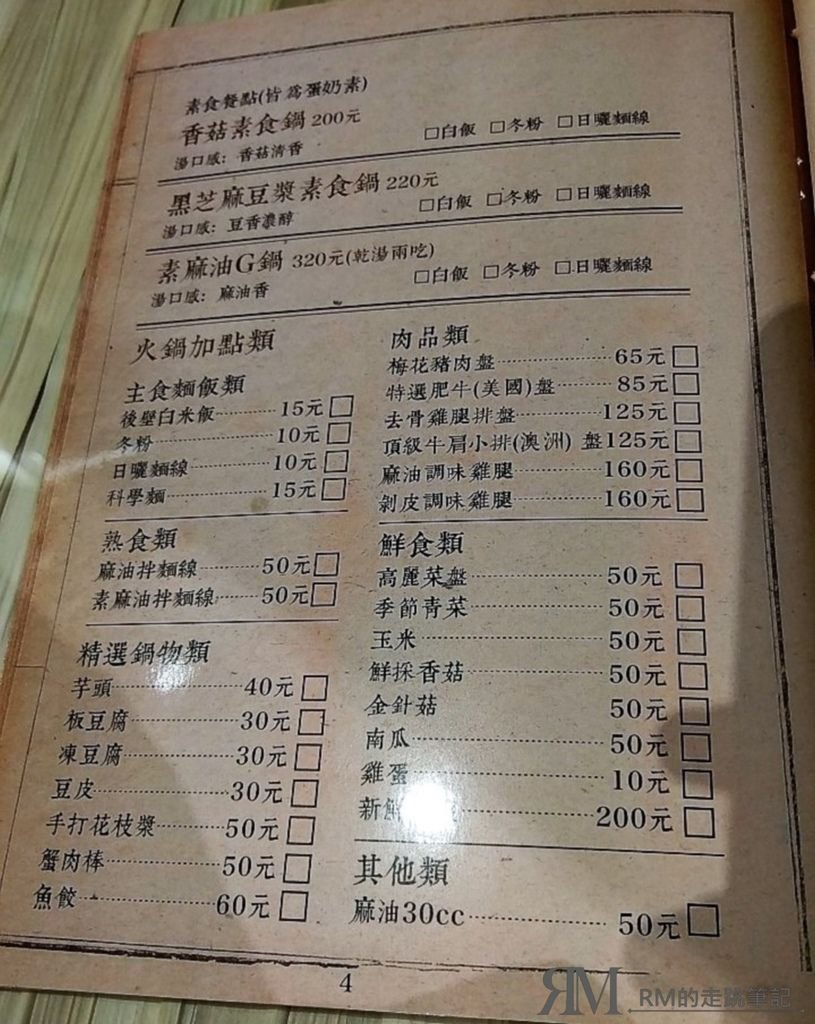 素食餐點(皆為蛋奶素)
香菇素食鍋 200元
湯口感：香菇清香 □白飯 □冬粉 □日曬麵線
黑芝麻豆漿素食鍋 220元
湯口感：豆香濃醇 □白飯 □冬粉 □日曬麵線
素麻油G鍋 320元(乾湯兩吃)
湯口感：麻油香 □白飯 □冬粉 □日曬麵線
火鍋加點類
主食麵飯類
後壁白米飯 15元 □
冬粉 10元 □
日曬麵線 10元 □
科學麵 15元 □
熟食類
麻油拌麵線 50元 □
素麻油拌麵線 50元 □
精選鍋物類
芋頭 40元 □
板豆腐 30元 □
凍豆腐 30元 □
豆皮 30元 □
手打花枝漿 50元 □
蟹肉棒 50元 □
魚餃 60元 □
肉品類
梅花豬肉盤 65元 □
特選肥牛(美國)盤 85元 □
去骨雞腿排盤 125元 □
頂級牛肩小排(澳洲) 盤125元 □
麻油調味雞腿 160元 □
剝皮調味雞腿 160元 □
鮮食類
高麗菜盤 50元 □
季節青菜 50元 □
玉米 50元 □
鮮採香菇 50元 □
金針菇 50元 □
南瓜 50元 □
雞蛋 10元 □
新鮮 200元 □
其他類
麻油30cc 50元 □
4
RM RM的走跳筆記